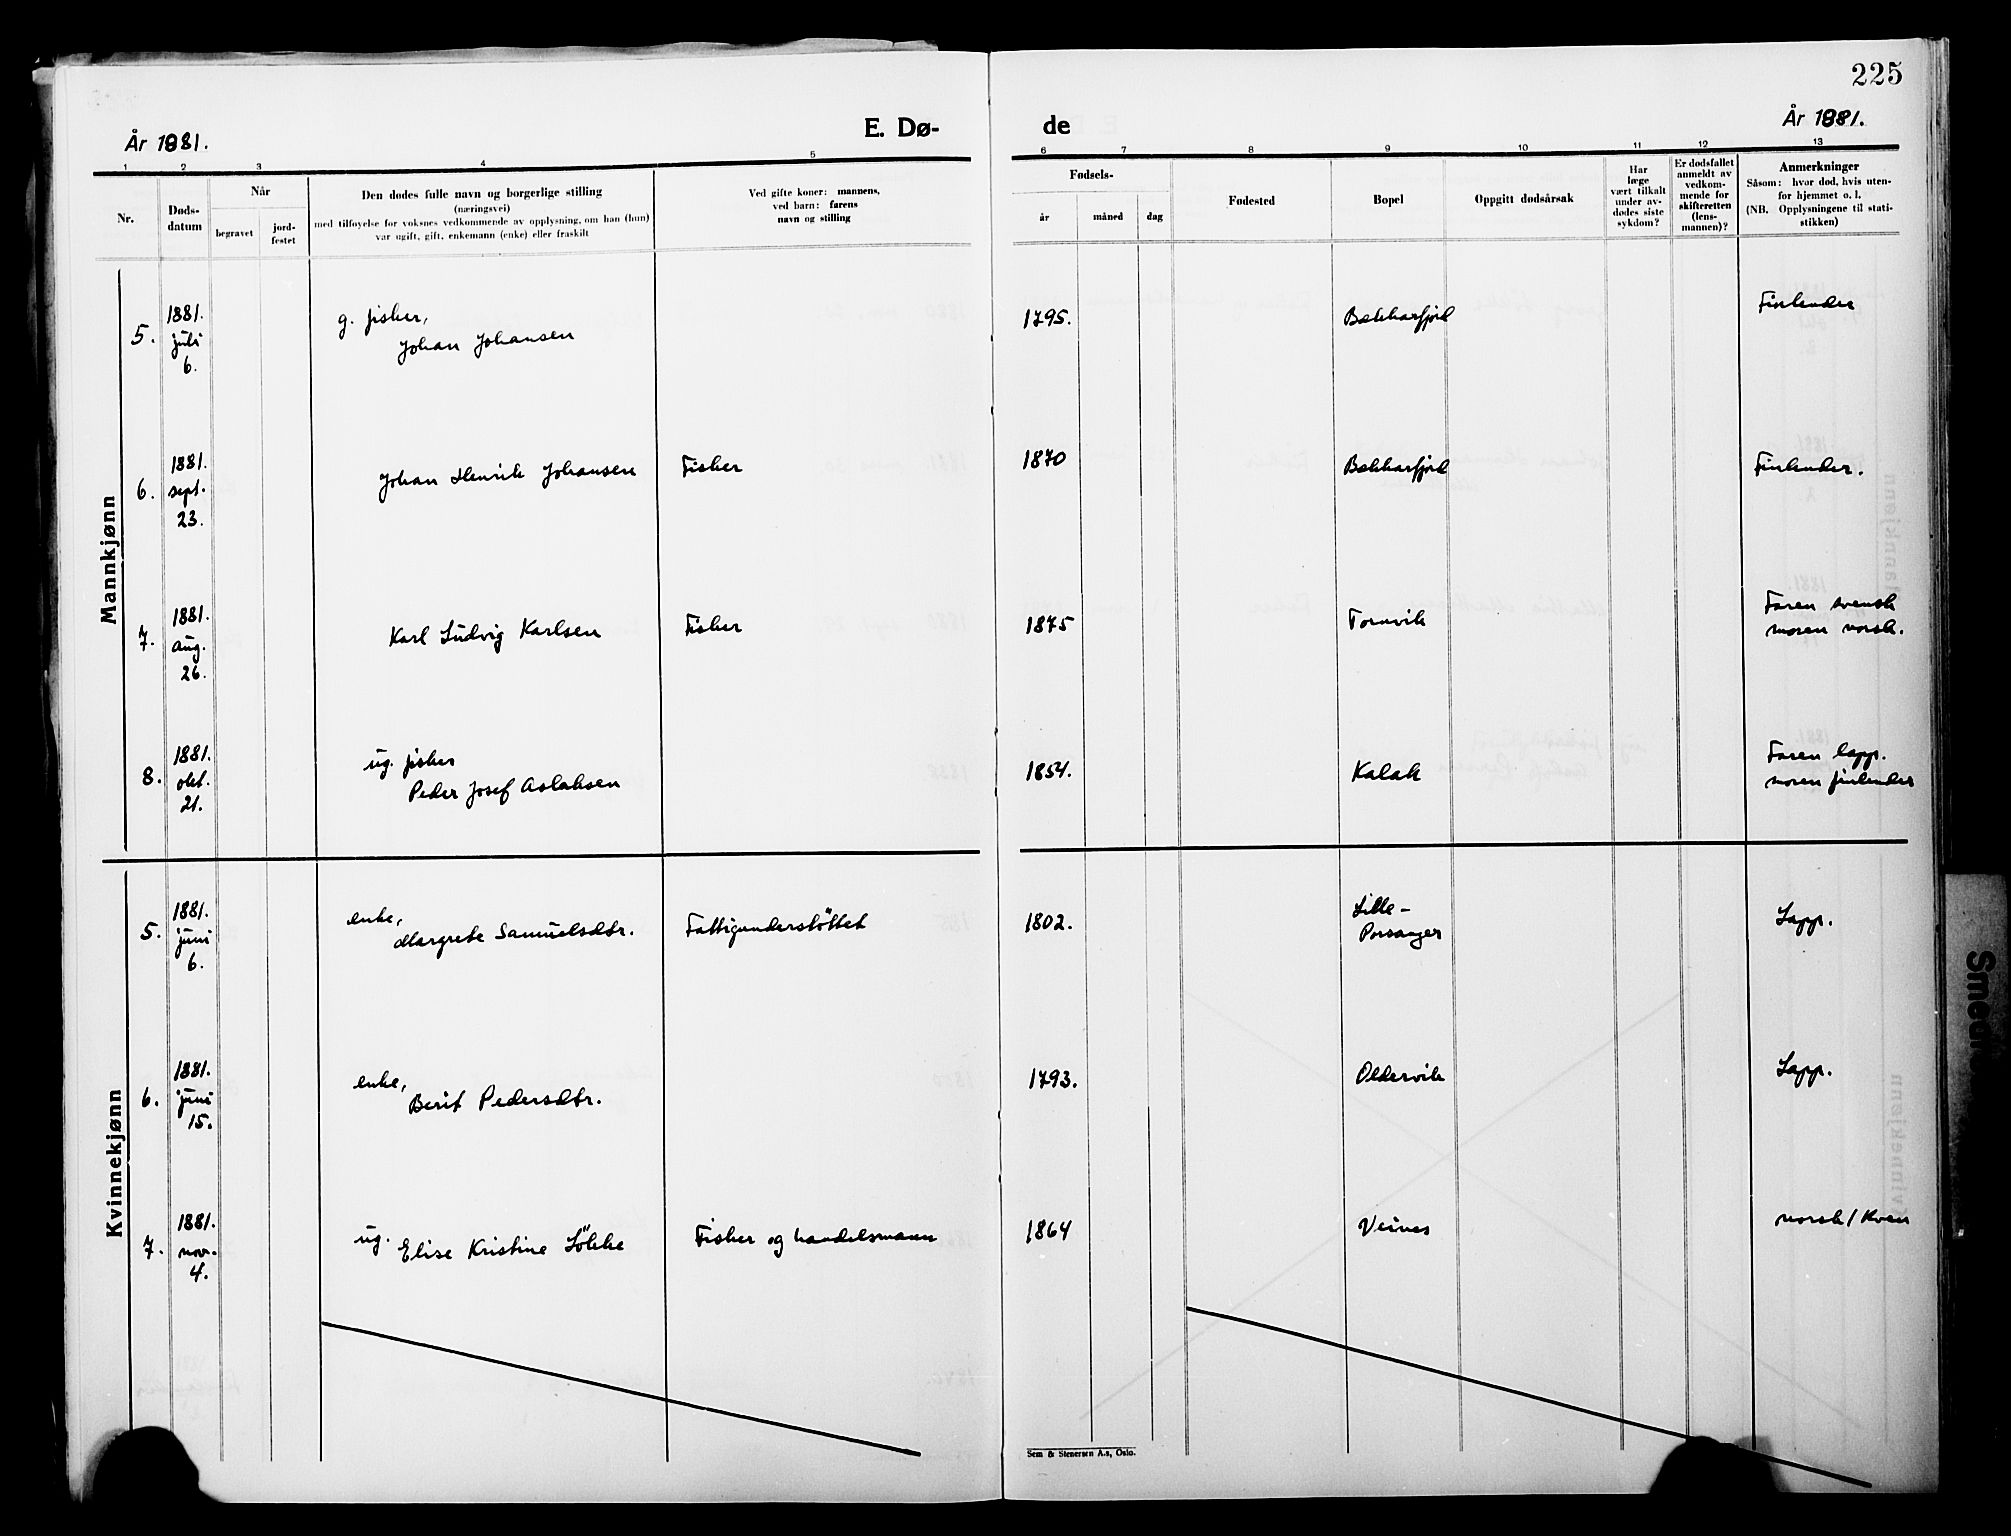 225
År 1881.
E. Dø-
de
År 1881.
1 2 3 4 5 6 7 8 9 10 11 12 13
Nr.
Døds-
datum
Når
begravet
jord-
festet
Den dødes fulle navn og borgerlige stilling
(næringsvei)
med tilføyelse for voksnes vedkommende av opplysning, om han (hun)
var ugift, gift, enkemann (enke) eller fraskilt
Ved gifte koner: mannens,
ved barn: farens
navn og stilling
Fødsels-
år
måned
dag
Fødested
Bopel
Oppgitt dødsårsak
Har
læge
vært tilkalt
under av-
dødes siste
sykdom?
Er dødsfallet
anmeldt av
vedkom-
mende for
skifteretten
(lens-
mannen)?
Anmerkninger
Såsom: hvor død, hvis uten-
for hjemmet o. l.
(NB. Opplysningene til stati-
stikken)
Mannkjønn
5.
1881.
juli
6.
g. fisker,
Johan Johansen
1795.
Bekkarfjord
Finlender
6.
1881.
sept.
23.
Johan Henrik Johansen
Fisker
1870
Bekkarfjord
Finlender.
7.
1881.
aug.
26.
Karl Ludvig Karlsen
Fisker
1875
Tornvik
Faren svensk
moren norsk.
8.
1881.
okt.
21.
ug. fisker
Peder Josef Aslaksen
1854.
Kalak
Faren lapp.
moren finlender
Kvinnekjønn
5.
1881.
juni
6.
enke,
Margrete Samuelsdtr.
Fattigunderstöttet
1802.
Lille-
Porsanger
Lapp.
6.
1881.
juni
15.
enke,
Berit Pedersdtr.
1793.
Oldervik
Lapp.
7.
1881.
nov.
4.
ug.
Elise Kristine Lökke
Fisker og handelsmann
1864
Veines
norsk/kven
Sem & Stenersen A.s, Oslo.